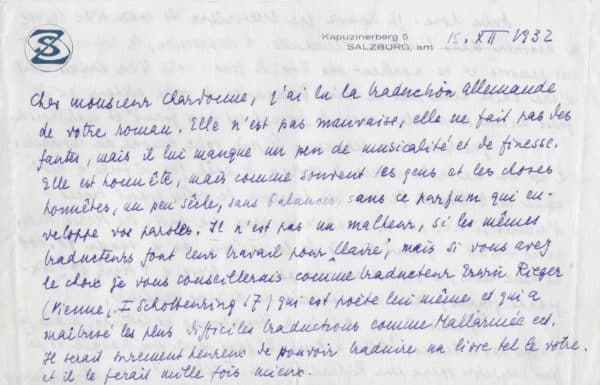 SZ
Kapuzinerberg 5
SALZBURG, am 15. XII 1932
Cher monsieur Chardonne, j'ai lu la traduction allemande
de votre roman. Elle n'est pas mauvaise, elle ne fait pas des
fautes, mais il lui manque un peu de musicalité et de finesse.
Elle est honnête, mais comme souvent les gens et les choses
honnêtes, un peu sèche, sans balances, sans ce parfum qui en-
veloppe vos paroles. Il n'est pas un malheur, si les mêmes
traducteurs font leur travail pour "Claire", mais si vous avez
le choix je vous conseillerais comme traducteur Erwin Rieger
(Vienne, I Schottenring 17) qui est poète lui même et qui a
maîtrisé les plus difficiles traductions comme Mallarmée ect.
Il serait surement heureux de pouvoir traduire un livre tel le votre.
et il le ferait mille fois mieux.